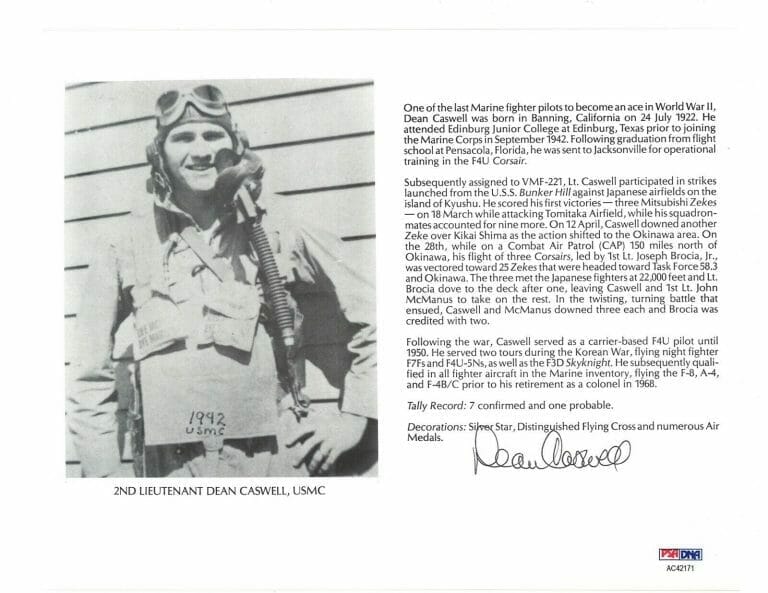 One of the last Marine fighter pilots to become an ace in World War II,
Dean Caswell was born in Banning, California on 24 July 1922. He
attended Edinburg Junior College at Edinburg, Texas prior to joining
the Marine Corps in September 1942. Following graduation from flight
school at Pensacola, Florida, he was sent to Jacksonville for operational
training in the F4U Corsair.
Subsequently assigned to VMF-221, Lt. Caswell participated in strikes
launched from the U.S.S. Bunker Hill against Japanese airfields on the
island of Kyushu. He scored his first victories — three Mitsubishi Zekes
— on 18 March while attacking Tomitaka Airfield, while his squadron-
mates accounted for nine more. On 12 April, Caswell downed another
Zeke over Kikai Shima as the action shifted to the Okinawa area. On
the 28th, while on a Combat Air Patrol (CAP) 150 miles north of
Okinawa, his flight of three Corsairs, led by 1st Lt. Joseph Brocia, Jr.,
was vectored toward 25 Zekes that were headed toward Task Force 58.3
and Okinawa. The three met the Japanese fighters at 22,000 feet and Lt.
Brocia dove to the deck after one, leaving Caswell and 1st Lt. John
McManus to take on the rest. In the twisting, turning battle that
ensued, Caswell and McManus downed three each and Brocia was
credited with two.
Following the war, Caswell served as a carrier-based F4U pilot until
1950. He served two tours during the Korean War, flying night fighter
F7Fs and F4U-5Ns, as well as the F3D Skyknight. He subsequently quali-
fied in all fighter aircraft in the Marine inventory, flying the F-8, A-4,
and F-4B/C prior to his retirement as a colonel in 1968.
Tally Record: 7 confirmed and one probable.
Decorations: Silver Star, Distinguished Flying Cross and numerous Air
Medals.
Dean Caswell
1942
USMC
2ND LIEUTENANT DEAN CASWELL, USMC
PSA DNA
AC42171